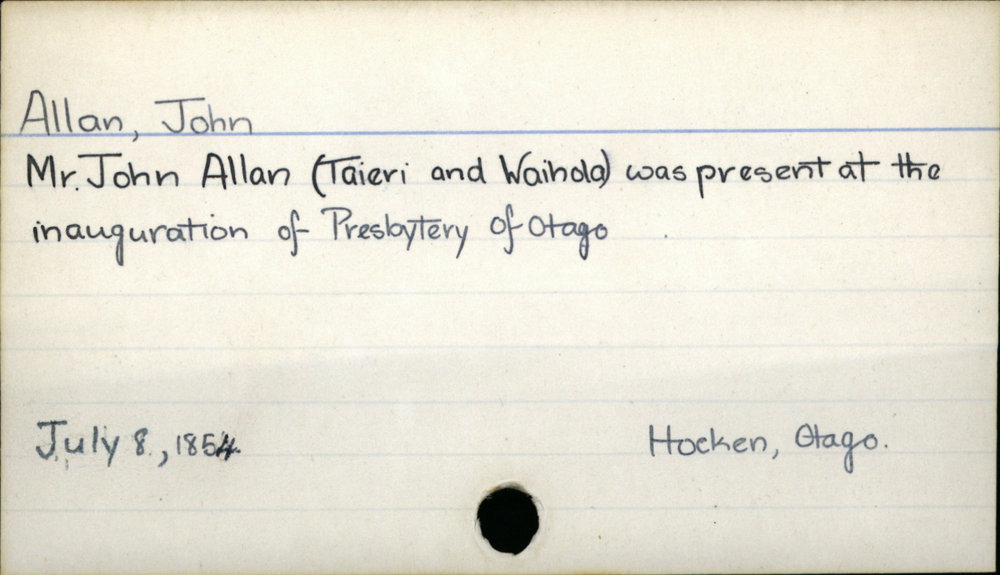 Allan, John
Mr. John Allan (Taieri and Waihola) was present at the
inauguration of Presbytery of Otago
July 8, 1854.
Hocken, Otago.